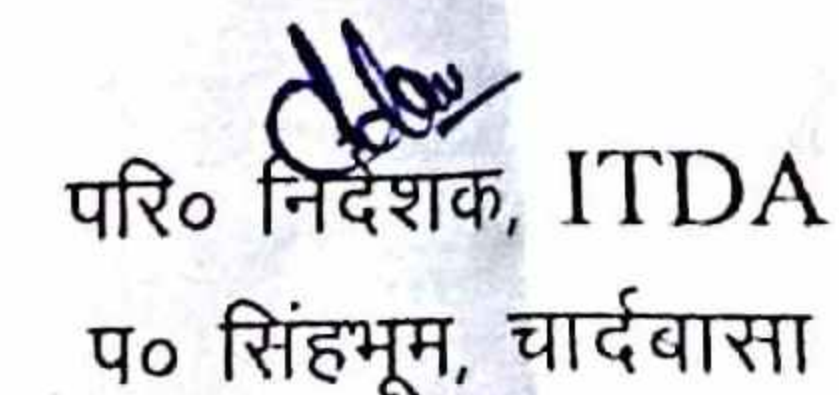 परि० निदेशक, ITDA
प० सिंहभूम, चार्दबासा